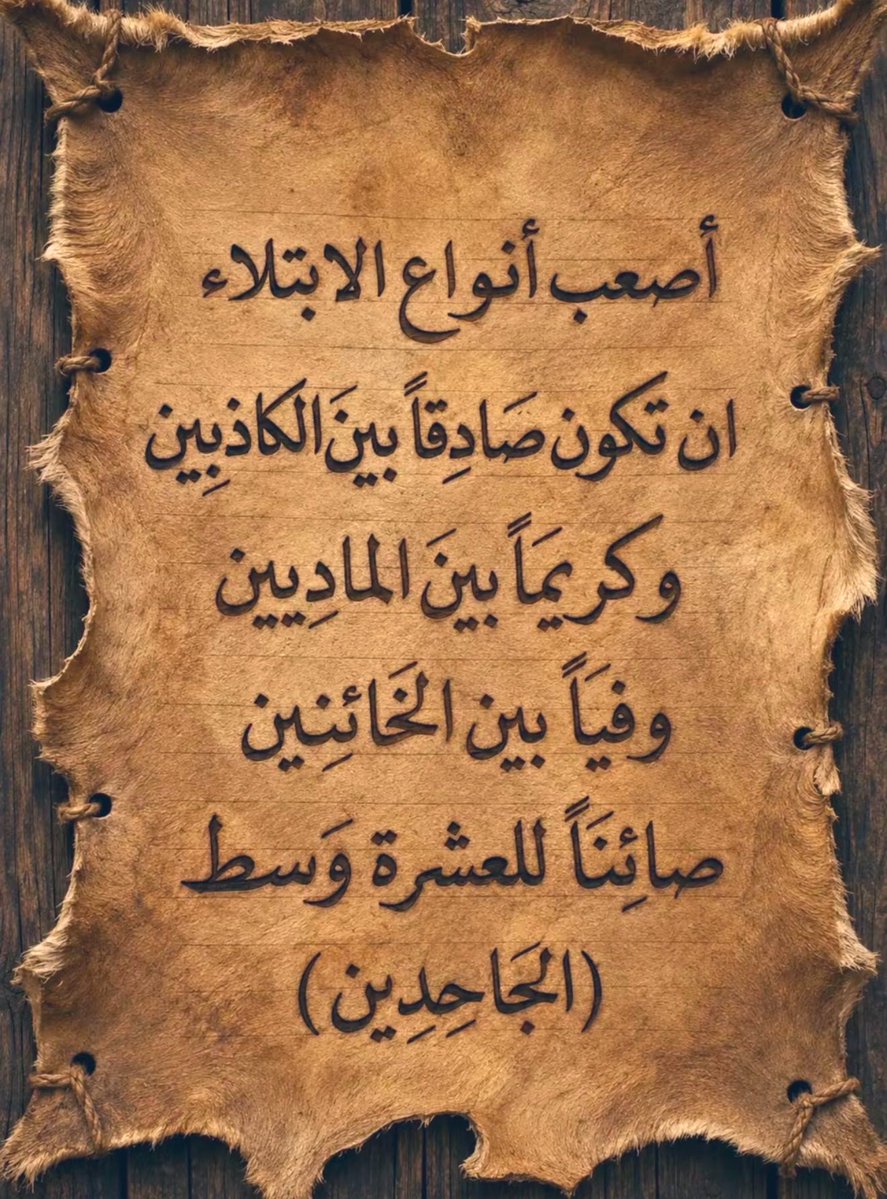 أصعب أنواع الابتلاء
ان تكون صَادِقاً بينَ الكاذبِين
وكريمَاً بينَ المادِيين
وفيَاً بين الخَائِنِين
صائِنَاً للعشرة وَسط
(الجَاحِدِين)